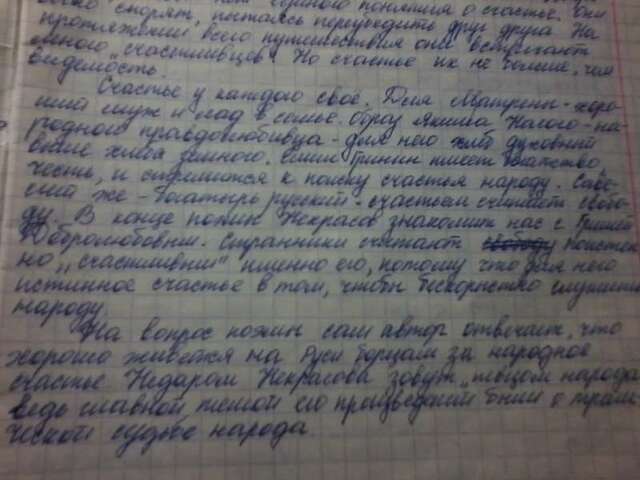 спорят, пытаясь переубедить друг друга. На
протяжении всего путешествия они встречают
много „счастливцев". Но счастье их не больше, чем
видемость.
Счастье у каждого своё. Для Матрены - хоро-
ший муж и лад в семье. Образ Якима Нагого - на-
родного правдолюбивца - для него хлеб духовный
выше хлеба земного. Ермил Гирин имеет богатство,
честь, и стремится к поиску счастья народу. Саве-
лий же - богатырь русский - счастьем считает свобо-
ду. В конце поэмы Некрасов знакомит нас с Гришей
Добролюбовым. Странники считают поистен-
но „счастливым" именно его, потому что для него
истинное счастье в том, чтобы бескорыстно служить
народу.
На вопрос поэмы сам автор отвечает, что
хорошо живется на Руси борцам за народное
счастье. Недаром Некрасова зовут „певцом народа
ведь главной темой его произведений были о траги-
ческой судьбе народа.